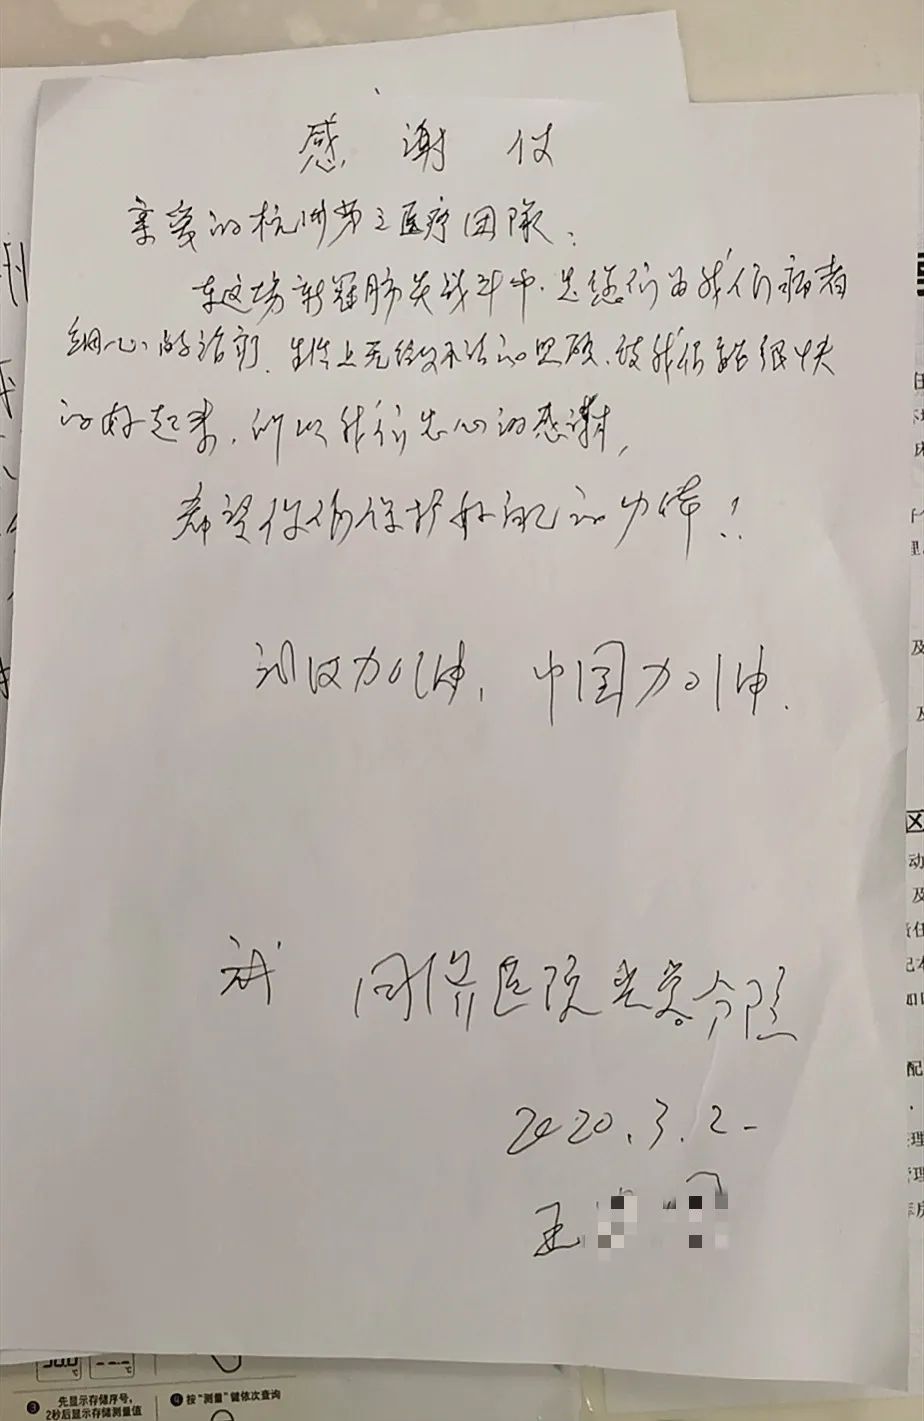 感谢信
亲爱的杭州第三医疗团队:
在这场新冠肺炎战斗中.是您们为我们病者
细心的治疗.生活上无微不至的照顾.使我们能很快
的好起来.所以我们忠心的感谢,
希望你们保护好自己的身体!!
武汉加油,中国加油.
武 同济医院光谷分院
2020.3.2-
王
先显示存储序号,
2秒后显示存储测量值
按"测量"键依次查询
区
动
及
责任
配
理
管理